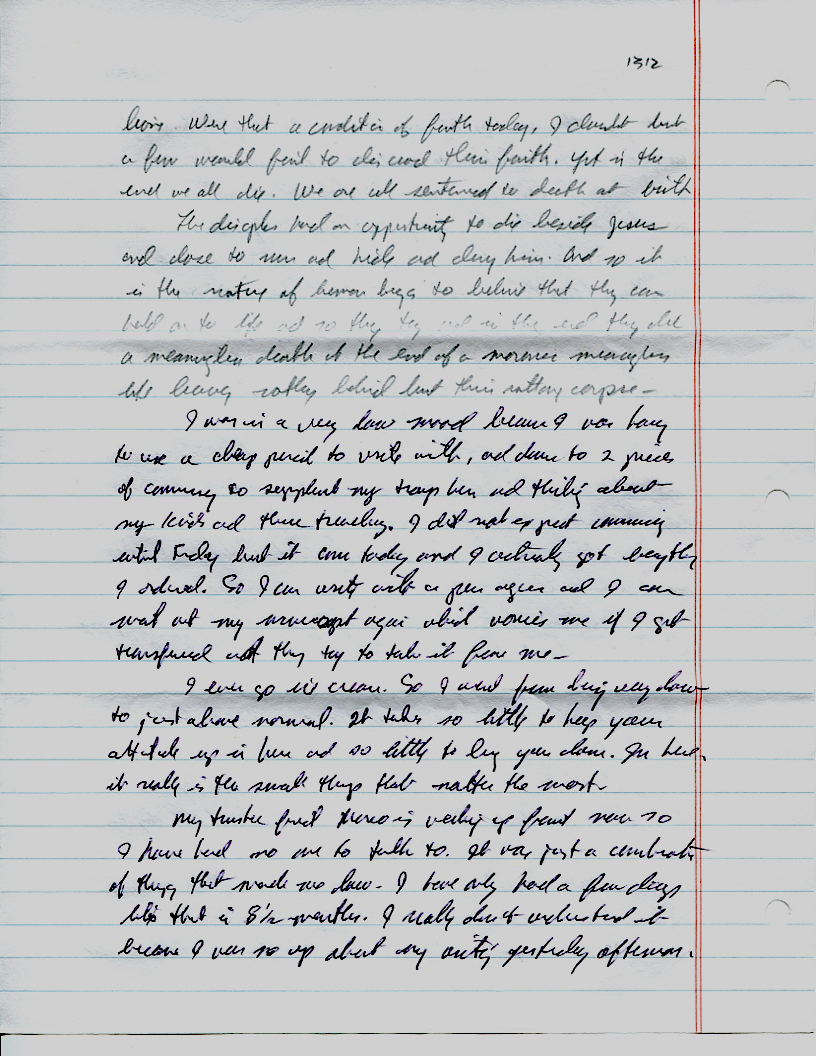 1312
lions. Were that a condition of faith today, I doubt but
a few would fail to discard their faith. Yet in the
end we all die. We are all sentenced to death at birth
The disciples had an opportunity to die beside Jesus
and chose to run and hide and deny him. And so it
is the nature of human beings to believe that they can
hold on to life and so they try and in the end they die
a meaningless death at the end of a meaningless
life leaving nothing behind but their rotting corpse -
I was in a very low mood because I was having
to use a cheap pencil to write with, and down to 2 pieces
of commissary to supplement my and thinking about
my kids and their. I did not expect commissary
until Friday but it came today and I actually got everything
I ordered. So I can write with a pen again and I can
my manuscript again which worries me if I get
transferred and they try to take it from me -
I even got ice cream. So I went from being very down
to just above normal. It takes so little to keep your
attitude up in here and so little to bring you down. In here,
it really is the small things that matter the most.
My trustee friend is working up front now so
I have had no one to talk to. It was just a combination
of things that made me low. I have only had a few days
like that in 8 1/2 months. I really don't understand it
because I was so up about my writing yesterday afternoon.